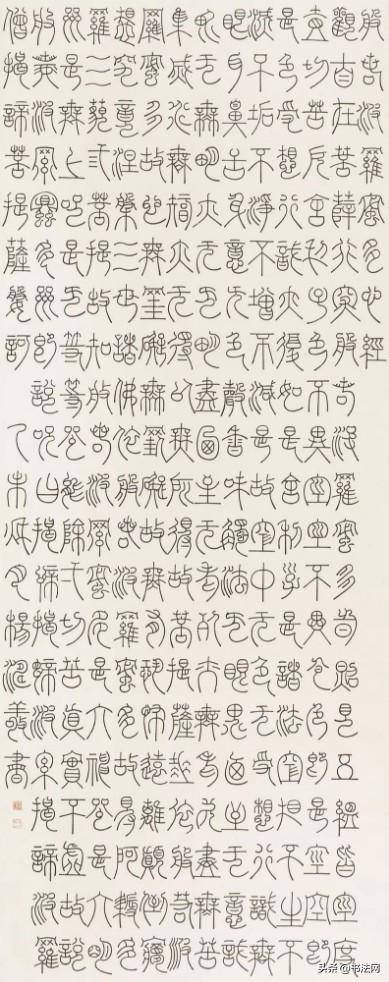 般若波羅蜜多心經
觀自在菩薩行深般若波羅蜜多時照見五蘊皆空度
壹切苦厄舍利子色不異空空不異色色即是空空即
是色受想行識亦復如是舍利子是諸法空相不生不
滅不垢不淨不增不減是故空中無色無受想行識無
眼耳鼻舌身意無色聲香味觸法無眼界乃至無意識
界無無明亦無無明盡乃至無老死亦無老死盡無苦
集滅道無智亦無得以無所得故菩提薩埵依般若波
羅蜜多故心無罣礙無罣礙故無有恐怖遠離顛倒夢
想究竟涅槃三世諸佛依般若波羅蜜多故得阿耨多
羅三藐三菩提故知般若波羅蜜多是大神咒是大明
咒是無上咒是無等等咒能除一切苦真實不虛故說
般若波羅蜜多咒即說咒曰揭諦揭諦波羅揭諦波羅
僧揭諦菩提薩婆訶
書
头条@书法网